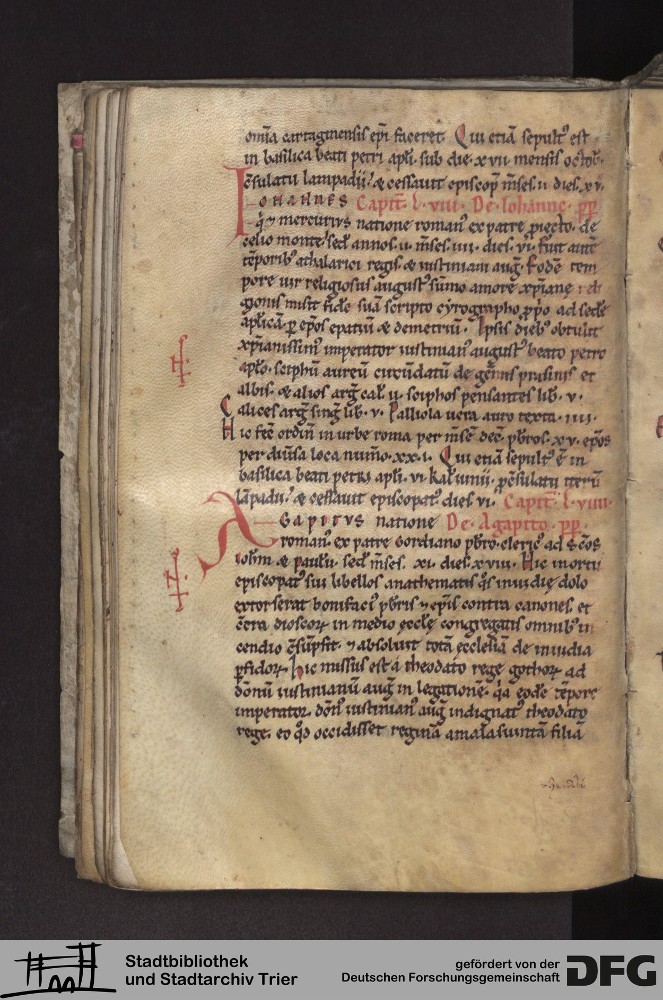 omĩa cartaginensis ep̃i faceret. Qui etiã sepult᷒ est
in basilica beati petri apl̃i. sub die. xvii. mensis octob̃.
c̃sulatu lampadii. & cessauit episcop̃ m̃ses. ii. dies. xv.
IOHANNES Capit̃. l. viii. De Iohanne. p̃p̃
q̃ ⁊ mercurius natione roman᷒ ex patre p̃iecto. de
celio monte. sed̃. annos. ii. m̃ses. iiii. dies. vi. fuit autẽ
tẽporib᷒ athalarici regis. & iustiniani aug̃. Eodẽ tem
pore uir religiosus august᷒ sũmo amore xp̃iane re
gionis misit fidẽ suã scripto cyrographo p̃p̃o ad sedẽ
apl̃icã. p̃ ep̃os epatiũ & demetriũ. Ipsis dieb᷒ obtulit
xp̃ianissim᷒ imperator iustinian᷒ august᷒ beato petro
apl̃o. sciphũ aureũ circũdatũ de gẽmis prasinis et
albis. & alios arg̃. cal̃. ii. sciphos pensantes lib̃. v.
Calices arg̃. sing̃. lib̃. v. Palliola uera auro texta. iiii.
Hic fec̃ ordin̄ in urbe roma per m̃sẽ dec̃. p̃bros. xv. ep̃os
per diũsa loca num̃o. xxi. Qui etiã sepult᷒ ẽ in
basilica beati petri apl̃i. vi. kal̃. iunii. p̃c̃sulatu iterũ
lãpadii. & cessauit episcopat᷒ dies. vi. Capit̃. l. viiii.
AGAPITVS natione De Agapito. p̃p̃.
roman᷒. ex patre Gordiano p̃bro. cleric᷒ ad s̃c̃os
ioh̃m & paulũ. sed̃. m̃ses. xi. dies. xviii. Hic in ortu
episcopat᷒ sui libellos anathematis q̃s inuidię dolo
extorserat bonifaci᷒ p̃bris ⁊ ep̃is contra canones. et
c̃tra dioscoꝝ in medio eccl̃ę congregatis omnib᷒ in
cendio c̃sũpsit. ⁊ absoluit totã ecclesiã de inuidia
p̃fidoꝝ. Hic missus est a theodato rege gothoꝝ ad
dõnũ iustinianũ aug̃ in legationẽ. q̃a eodẽ tẽpore
imperator dõn᷒ iustinian᷒ aug̃ indignat᷒ theodato
rege. eo q̃d occidisset reginã amalasuintã filiã
Stadtbibliothek
und Stadtarchiv Trier
gefördert von der
Deutschen Forschungsgemeinschaft
DFG